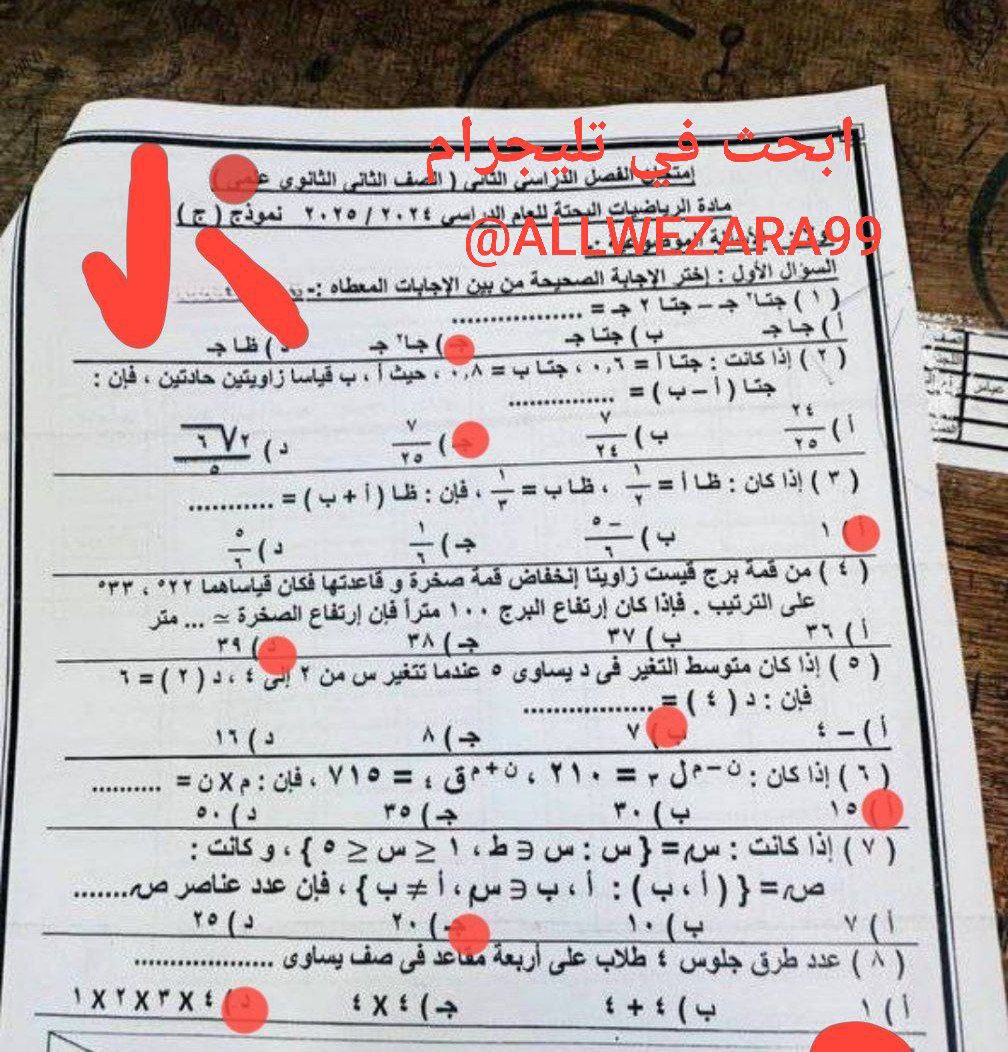 ابحث في تليجرام
@ALLWEZARA99
إمتحان الفصل الدراسى الثانى ( الصف الثانى الثانوى علمى )
مادة الرياضيات البحتة للعام الدراسى ٢٠٢٤ / ٢٠٢٥ نموذج ( ج )
السؤال الأول : إختر الإجابة الصحيحة من بين الإجابات المعطاه :-
( ١ ) جتا٢ جـ – جتا ٢ جـ = ................
أ ) جا جـ ب ) جتا جـ جـ ) جا٢ جـ د ) ظا جـ
( ٢ ) إذا كانت : جتا أ = ٠,٦ ، جتا ب = ٠,٨ ، حيث أ ، ب قياسا زاويتين حادتين ، فإن :
جتا ( أ – ب ) = ..............
أ ) ٢٤/٢٥ ب ) ٧/٢٤ جـ ) ٧/٢٥ د ) ٢√٦/٥
( ٣ ) إذا كان : ظا أ = ١/٢ ، ظا ب = ١/٣ ، فإن : ظا ( أ + ب ) = ...........
أ ) ١ ب ) –٥/٦ جـ ) ١/٦ د ) ٥/٦
( ٤ ) من قمة برج قيست زاويتا إنخفاض قمة صخرة و قاعدتها فكان قياساهما ٢٢° ، ٣٣°
على الترتيب . فإذا كان إرتفاع البرج ١٠٠ متراً فإن إرتفاع الصخرة ≃ ... متر
أ ) ٣٦ ب ) ٣٧ جـ ) ٣٨ د ) ٣٩
( ٥ ) إذا كان متوسط التغير فى د يساوى ٥ عندما تتغير س من ٢ إلى ٤ ، د ( ٢ ) = ٦
فإن : د ( ٤ ) = ................
أ ) – ٤ ب ) ٧ جـ ) ٨ د ) ١٦
( ٦ ) إذا كان : ن–م ل ٣ = ٢١٠ ، ن+م ق ٤ = ٧١٥ ، فإن : م X ن = ..........
أ ) ١٥ ب ) ٣٠ جـ ) ٣٥ د ) ٥٠
( ٧ ) إذا كانت : س = { س : س ∈ ط ، ١ ≤ س ≤ ٥ } ، و كانت :
ص = { ( أ ، ب ) : أ ، ب ∈ س ، أ ≠ ب } ، فإن عدد عناصر ص.......
أ ) ٧ ب ) ١٠ جـ ) ٢٠ د ) ٢٥
( ٨ ) عدد طرق جلوس ٤ طلاب على أربعة مقاعد فى صف يساوى ..................
أ ) ١ ب ) ٤ + ٤ جـ ) ٤ X ٤ د ) ٤ X ٣ X ٢ X ١